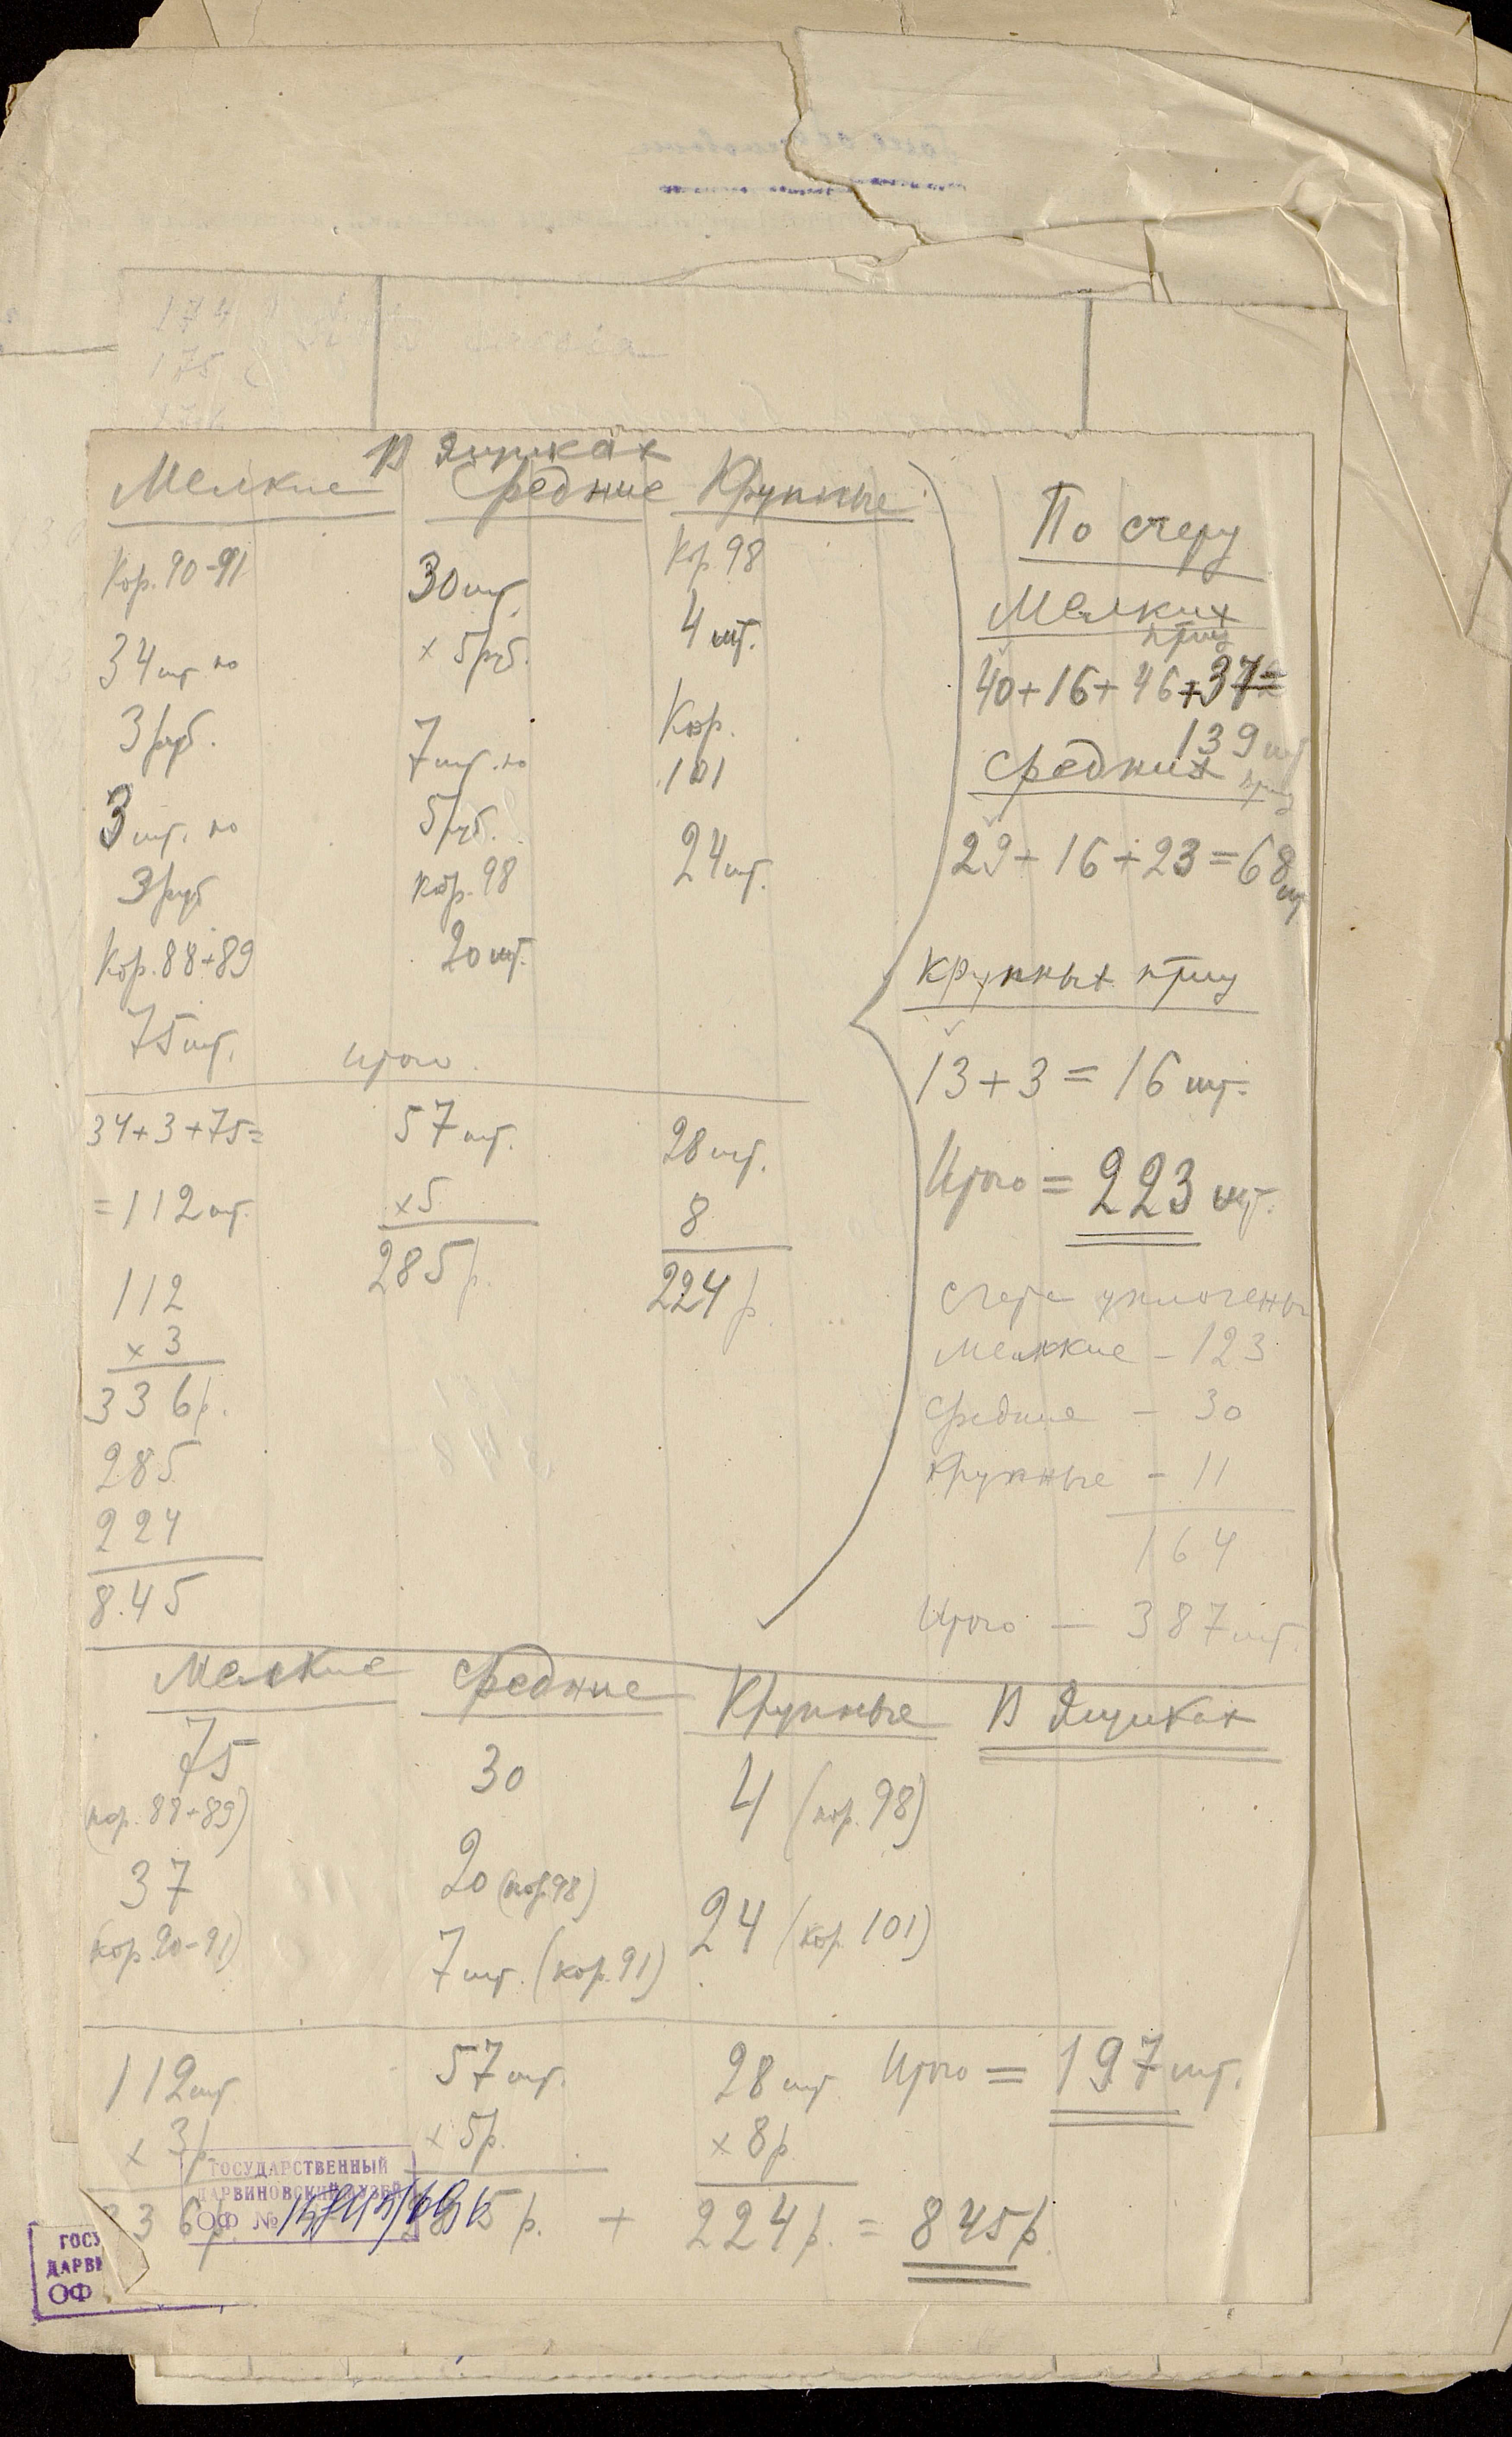 В Ящиках
Мелкие Средние Крупные
Кор. 90-91
34 шт по
3 руб.
3 шт. по
3 руб
Кор. 88+89
75 шт.
30 шт.
× 5 руб.
7 шт. по
5 руб.
кор. 98
20 шт.
Кор. 98
4 шт.
Кор.
101
24 шт.
Итого
34+3+75=
=112 шт.
112
× 3
336 р.
285
224
845
57 шт.
×5
285 р.
28 шт.
8
224 р.
По счету
Мелких
птиц
40+16+46+37=
139 шт
Средних
птиц
29+16+23=68 шт
крупных птиц
13+3=16 шт.
Итого = 223 шт.
Счета уплочены
Мелкие - 123
Средние - 30
Крупные - 11
164
Итого — 387 шт.
Мелкие Средние Крупные В Ящиках
75
(кор. 88+89)
37
(кор. 90-91)
30
20 (кор. 98)
7 шт. (кор. 91)
4 (кор. 98)
24 (кор. 101)
112 шт 57 шт. 28 шт Итого = 197 шт.
× 3 р. × 5 р. × 8 р.
336 р. 285 р. + 224 р. = 845 р.
ГОСУДАРСТВЕННЫЙ
ДАРВИНОВСКИЙ МУЗЕЙ
ОФ №
ГОСУ
ДАРВИ
ОФ
174
175